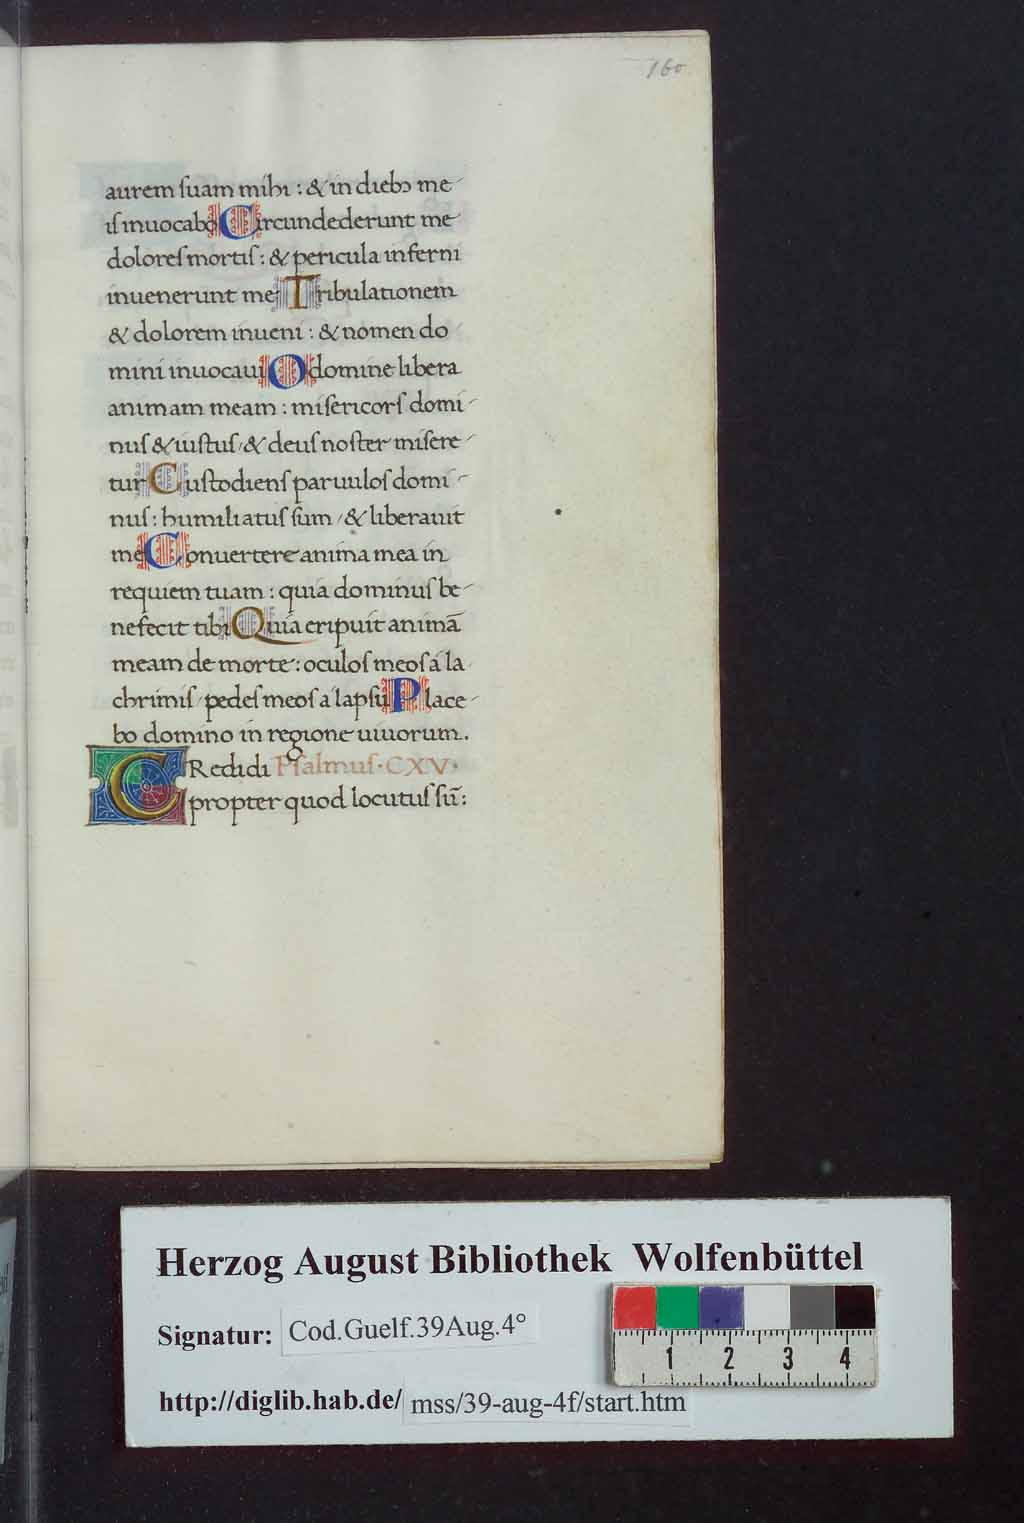 160
aurem ſuam mihi : & in diebꝫ me-
iſ inuocabo Circundederunt me
doloreſ mortiſ : & pericula inferni
inuenerunt me: Tribulationem
& dolorem inueni : & nomen do-
mini inuocaui O domine libera
animam meam : miſericorſ domi-
nuſ & iuſtuſ / & deuſ noſter miſere-
tur Cuſtodienſ paruuloſ domi-
nuſ : humiliatuſ ſum / & liberauit
me Conuertere anima mea in
requiem tuam : quia dominuſ be-
nefecit tibi Quia eripuit animā
meam de morte : oculoſ meoſ a la-
chrimiſ / pedeſ meoſ a lapſu Place-
bo domino in regione uiuorum.
CRedidi Pſalmuſ · CXV ·
propter quod locutuſ ſū :
Herzog August Bibliothek Wolfenbüttel
Signatur: Cod.Guelf.39Aug.4°
1 2 3 4
http://diglib.hab.de/ mss/39-aug-4f/start.htm